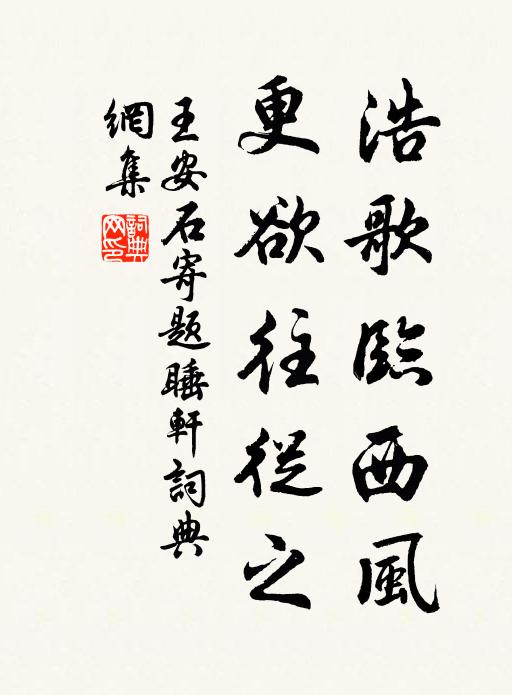 浩歌臨西風
更欲往從之
王安石寄題睡軒詞典
網集
詞典
网印